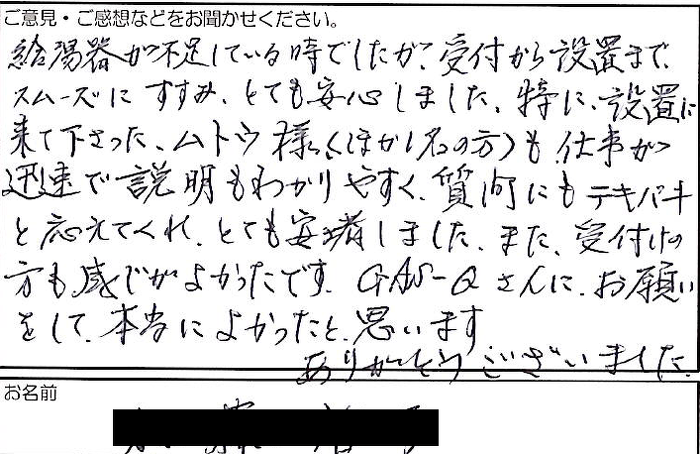 ご意見・ご感想などをお聞かせください。
給湯器が不足している時でしたが、受付から設置まで、
スムーズにすすみ、とても安心しました。特に、設置に
来て下さった、ムトウ様、(ほか1名の方)も仕事が
迅速で説明もわかりやすく、質問にもテキパキ
と応えてくれ、とても安堵しました。また、受付けの
方も感じがよかったです。GAS-Qさんに、お願い
をして、本当によかったと、思います
ありがとうございました。
お名前